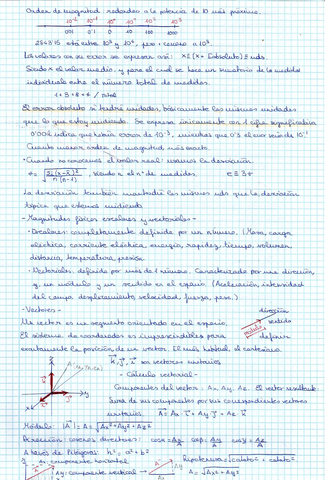 Orden de magnitud redondeo a la potencia de 10 más próxima.
10⁻² 10⁻¹ 10⁰ 10¹ 10² 10³
0'01 0'1 0 10 100 1000
284315 está entre 10⁵ y 10⁶, pero cercano a 10⁵.
Los valores con su error se expresan así: x ± (x = Eabsoluto) ± uds.
Siendo x el valor medio, y para el cual se hace un sumatorio de la medidas
individuales entre el número total de medidas.
El error absoluto sí tendrá unidades, básicamente las mismas unidades
que lo que estoy midiendo. Se expresa únicamente con 1 cifra significativa
0'001 indica que habrá error de 10⁻³, mientras que 0'3 el error sería de 10⁻¹
Cuanto menor orden de magnitud más exacto.
• Cuando no conocemos el valor real usamos la desviación.
siendo n el nº de medidas.
La desviación también mantendrá las mismas uds que la desviación
típica que estemos midiendo
- Magnitudes físicas escalares y vectoriales -
• Escalares: completamente definida por un número. (Masa, carga
eléctrica, corriente eléctrica, energía, rapidez, tiempo, volumen,
distancia, temperatura, presión.
• Vectoriales: definida por más de 1 número. Caracterizada por una dirección
y un módulo y un sentido en el espacio. (Aceleración, intensidad
del campo, desplazamiento, velocidad, fuerza, peso.)
- Vectores -
dirección
Un vector es un segmento orientado en el espacio.
sentido
módulo
El sistema de coordenadas es imprescindibles para definir
exactamente la posición de un vector. El más habitual, el cartesiano.
k, j, i son vectores unitarios
- Cálculo vectorial -
Componentes del vector: Ax, Ay, Az. El vector resultante
Suma de sus componentes por sus correspondientes vectores
unitarios. A = Ax · i + Ay · j + Az · k
Módulo: |A| = A = √Ax² + Ay² + Az²
Dirección cosenos directores: cosα = Ax/A cosβ = Ay/A cosγ = Az/A
A través de Pitágoras: h² = a² + b²
Ax: componente horizontal Hipotenusa = √cateto² + cateto²
Ay: componente vertical A = √Ax² + Ay²